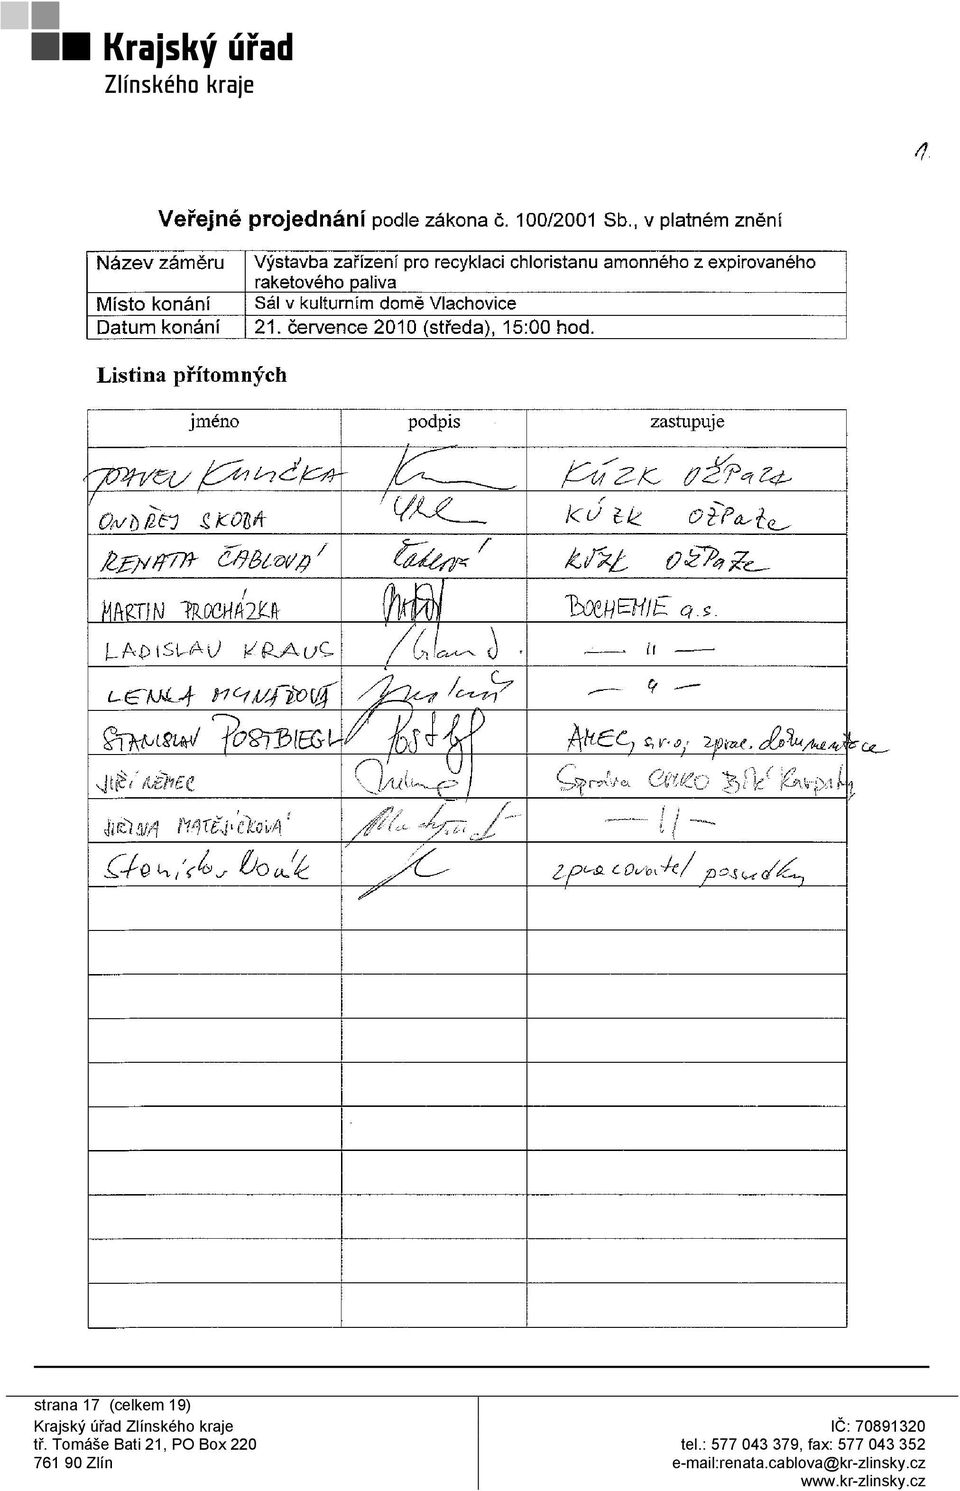 Krajský úřad
Zlínského kraje
1.
Veřejné projednání podle zákona č. 100/2001 Sb., v platném znění
Název záměru Výstavba zařízení pro recyklaci chloristanu amonného z expirovaného
raketového paliva
Místo konání Sál v kulturním domě Vlachovice
Datum konání 21. července 2010 (středa), 15:00 hod.
Listina přítomných
jméno podpis zastupuje
PAVEL KULIČKA KÚZK OŽPaZe
ONDŘEJ SKOBA KÚZK OŽPaZe
RENATA ČABLOVÁ Čablová KÚZK OŽPaZe
MARTIN PROCHÁZKA BOCHEMIE a.s.
LADISLAV KRAUS — 11 —
LENKA — 4 —
STANISLAV POSTBIEGL Postbgl AMEC, s.r.o., zprac. dokumentace
JIŘÍ NĚMEC Správa CHKO Bílé Karpaty
JIŘINA MATĚJÍČKOVÁ — 11 —
Stanislav Novák zpracovatel posudku
strana 17 (celkem 19)
Krajský úřad Zlínského kraje IČ: 70891320
tř. Tomáše Bati 21, PO Box 220 tel.: 577 043 379, fax: 577 043 352
761 90 Zlín e-mail:renata.cablova@kr-zlinsky.cz
www.kr-zlinsky.cz